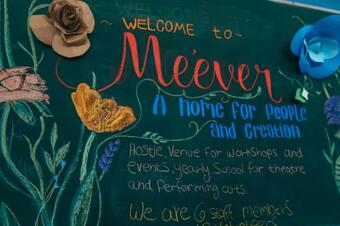 ~ WELCOME to ~
Méever
A home for people
and Creation
Hostle, Venue for workshops and
events, yearly School for theatre
and Performing arts.
We are 6 staff members